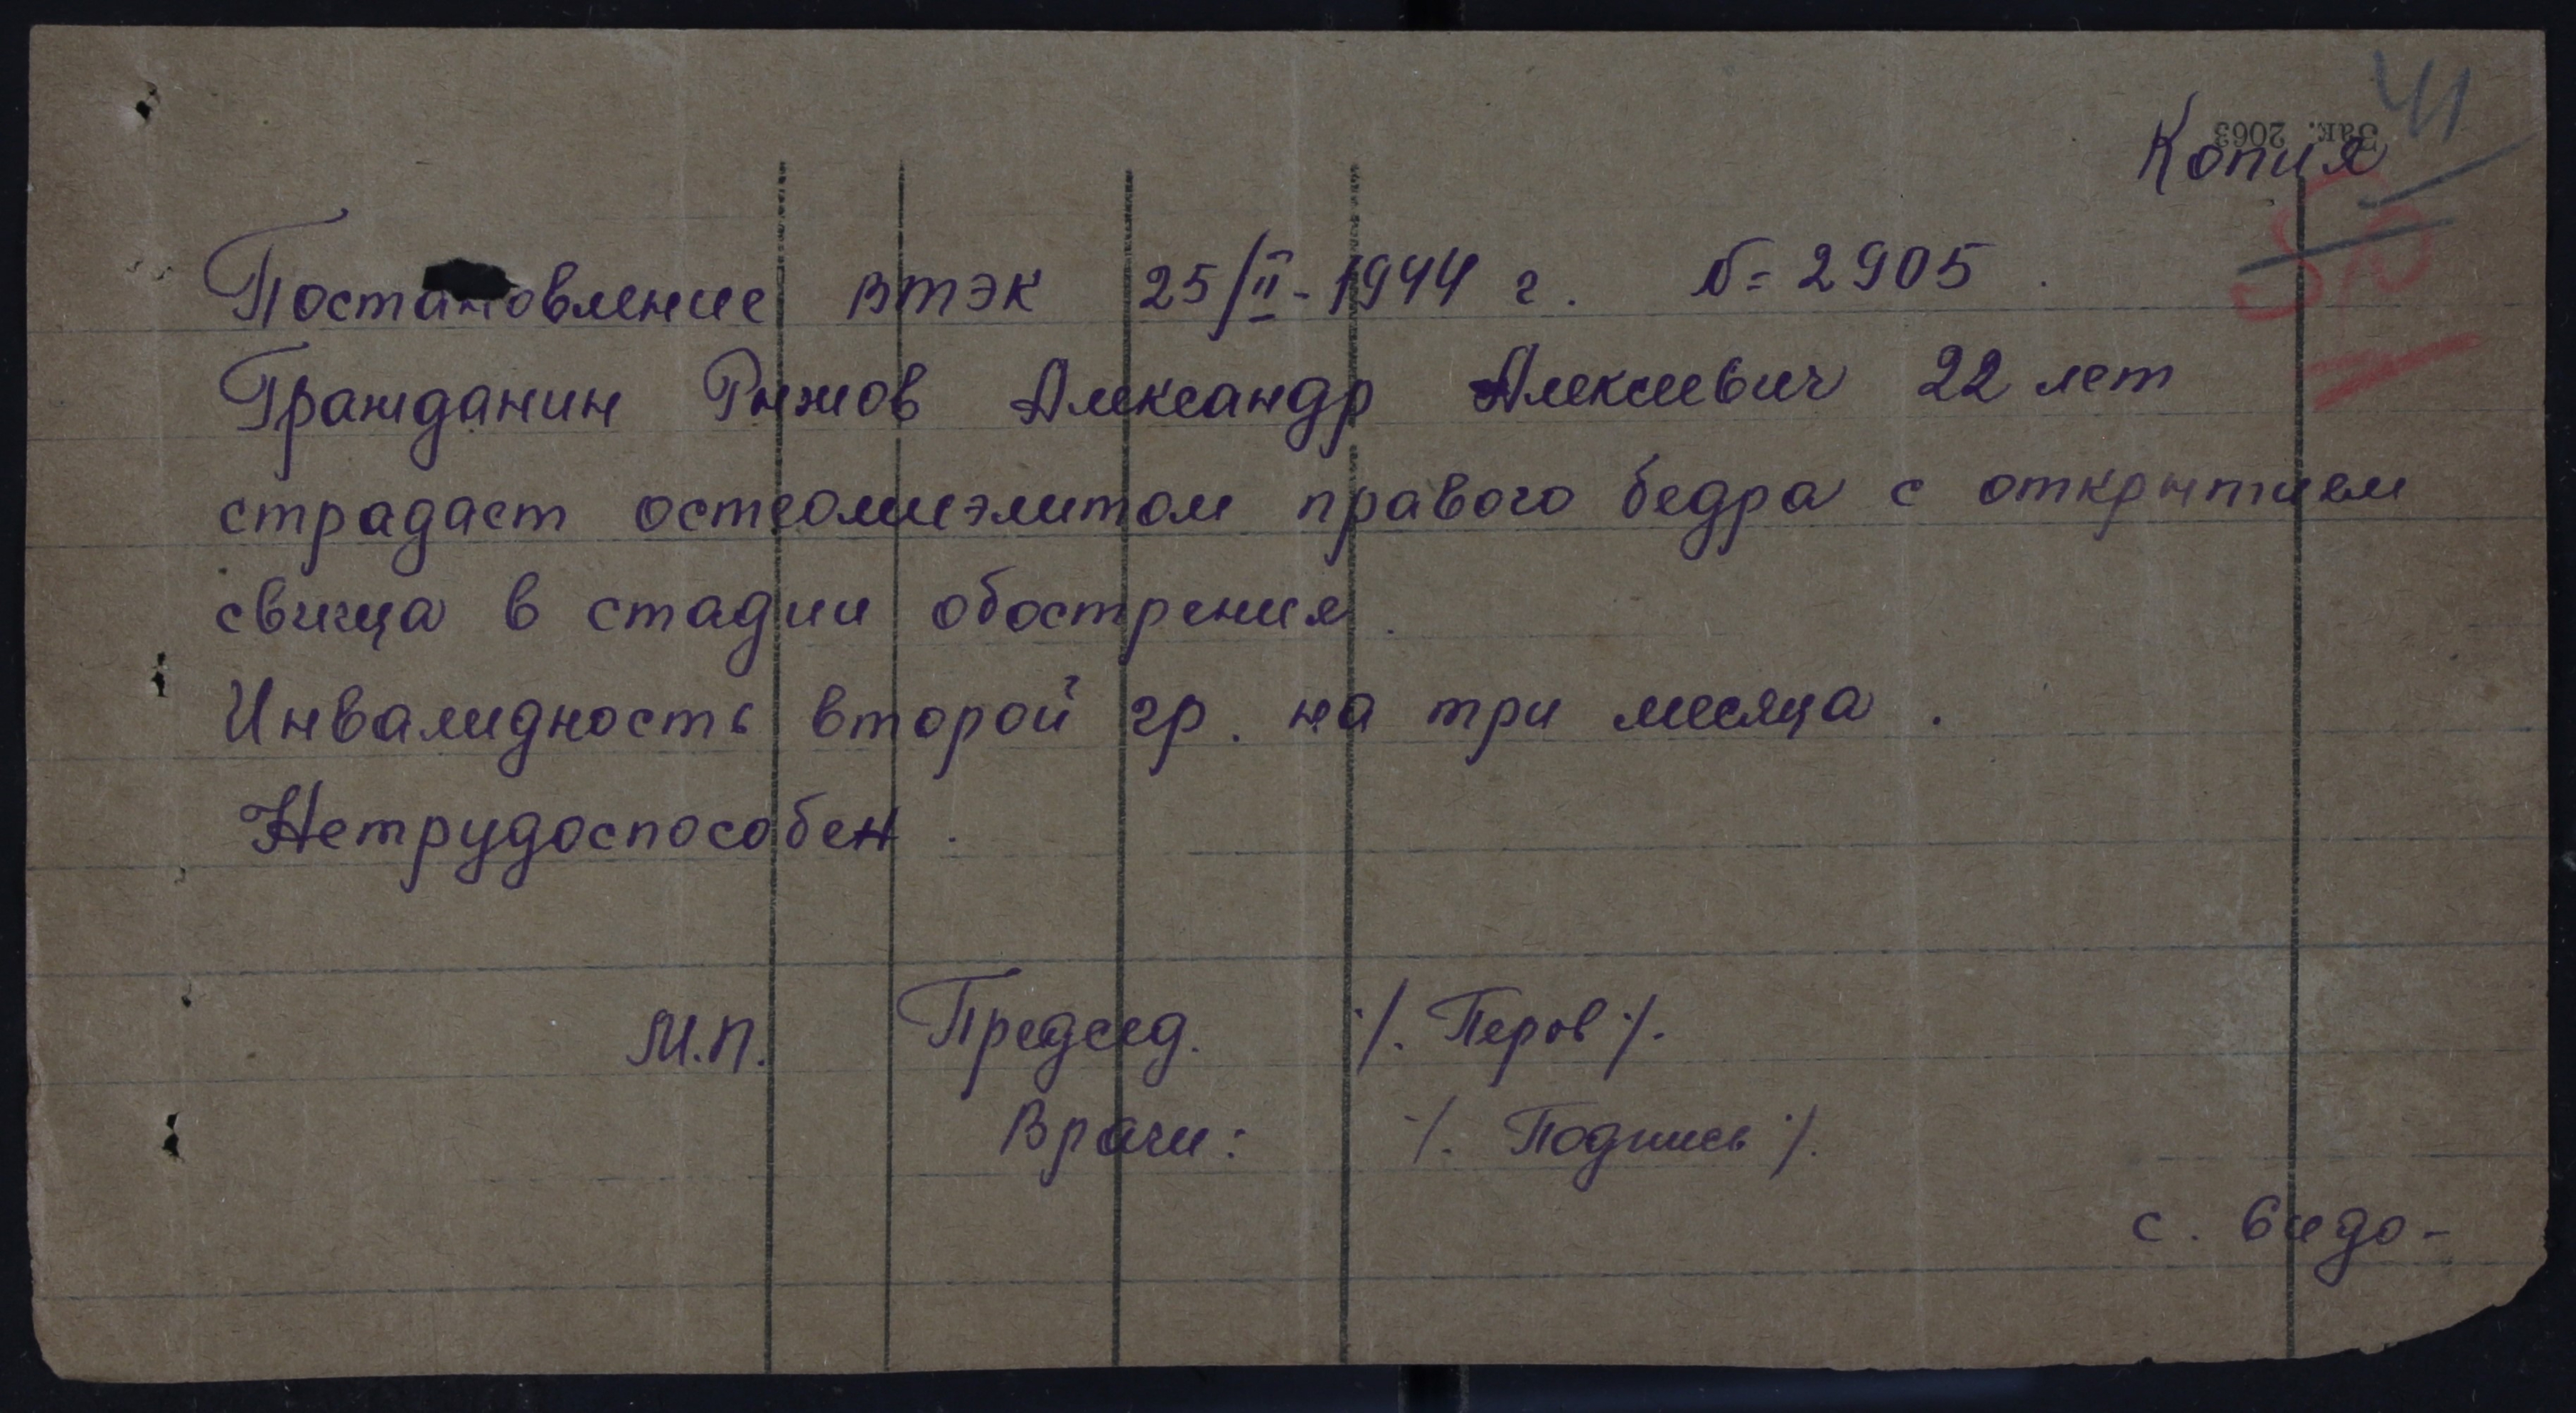 41
Зак. 2063
Копия
50
Постановление ВТЭК 25/II-1944 г. №=2905.
Гражданин Рыжов Александр Алексеевич 22 лет
страдает остеомиэлитом правого бедра с открытием
свища в стадии обострения.
Инвалидность второй гр. на три месяца.
Нетрудоспособен.
М.П. Председ. ./. Перов ./.
Врачи: ./. Подпись ./.
с.